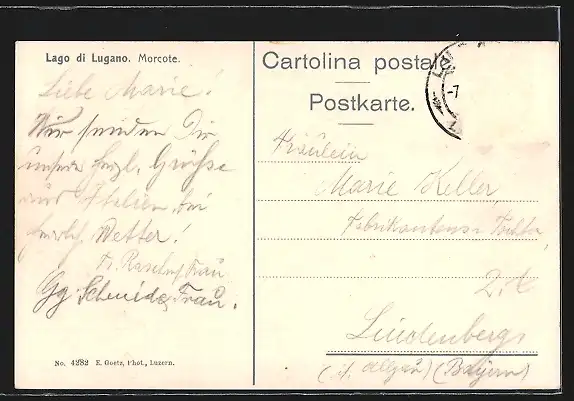 Lago di Lugano. Morcote.
Liebe Marie!
Wir senden Dir
unsere herzl. Grüsse
aus Italien bei
Wetter!
Frau
Gg. Schneider Frau.
No. 4282 E. Goetz, Phot., Luzern.
Cartolina postale
Postkarte.
-7
Fräulein
Marie Keller
Fabrikantens-Tochter
Lindenberg
(i. Allgäu) (Bayern)